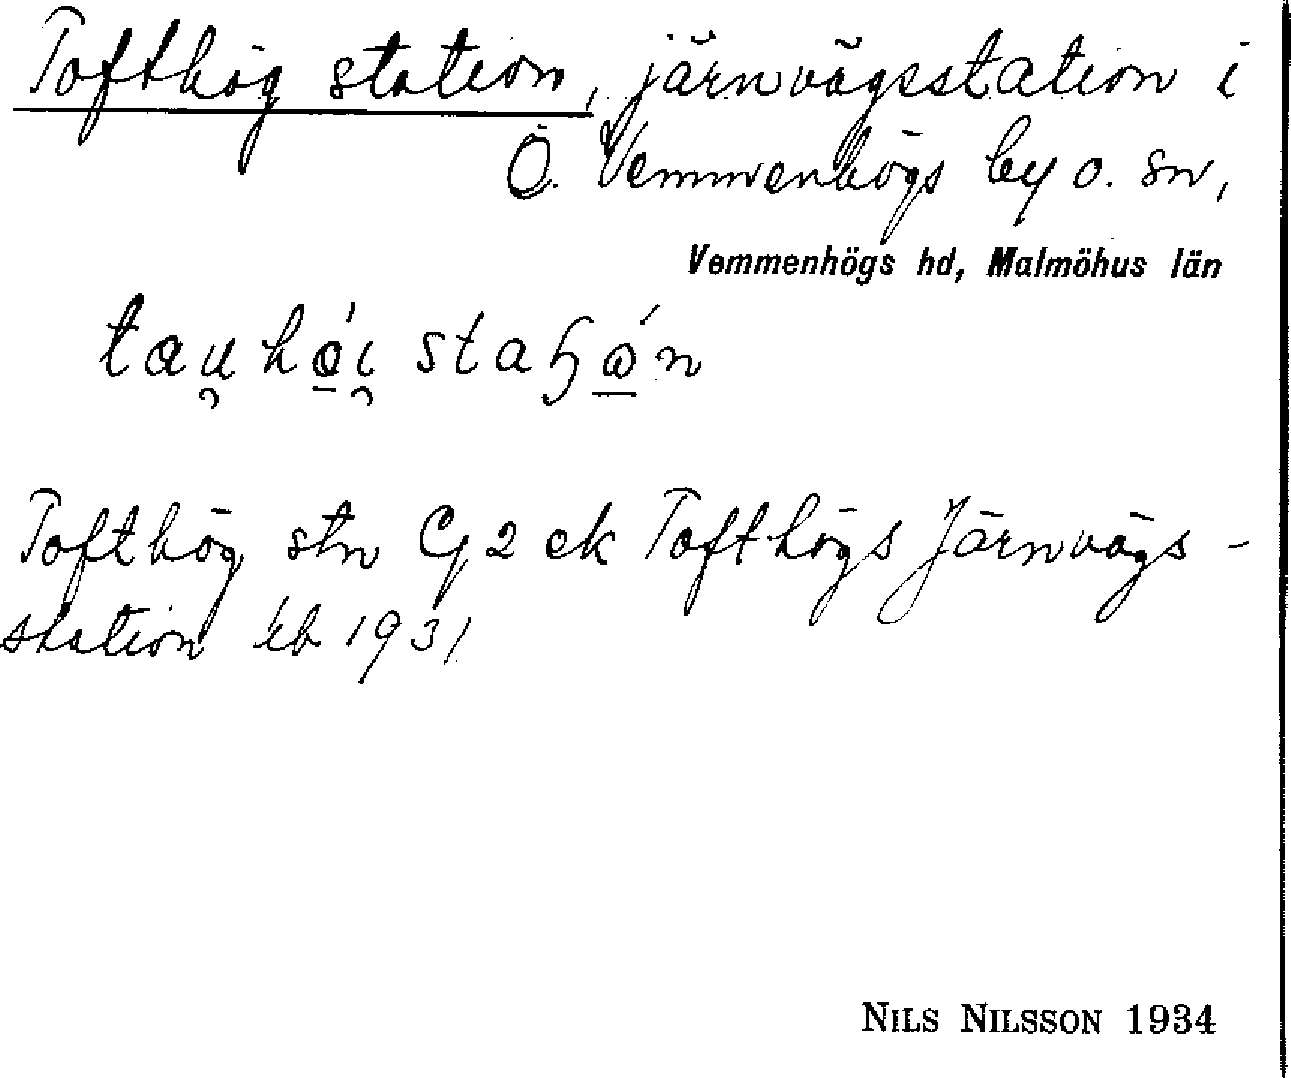 Tofthög station, järnvägsstation i
Ö. Vemmenhögs by o. sn,
Vemmenhögs hd, Malmöhus län
tau̯hǿi̯ staɧώn
Tofthög stn G 2 ek Tofthögs Järnvägs-
station kb 1931
NILS NILSSON 1934